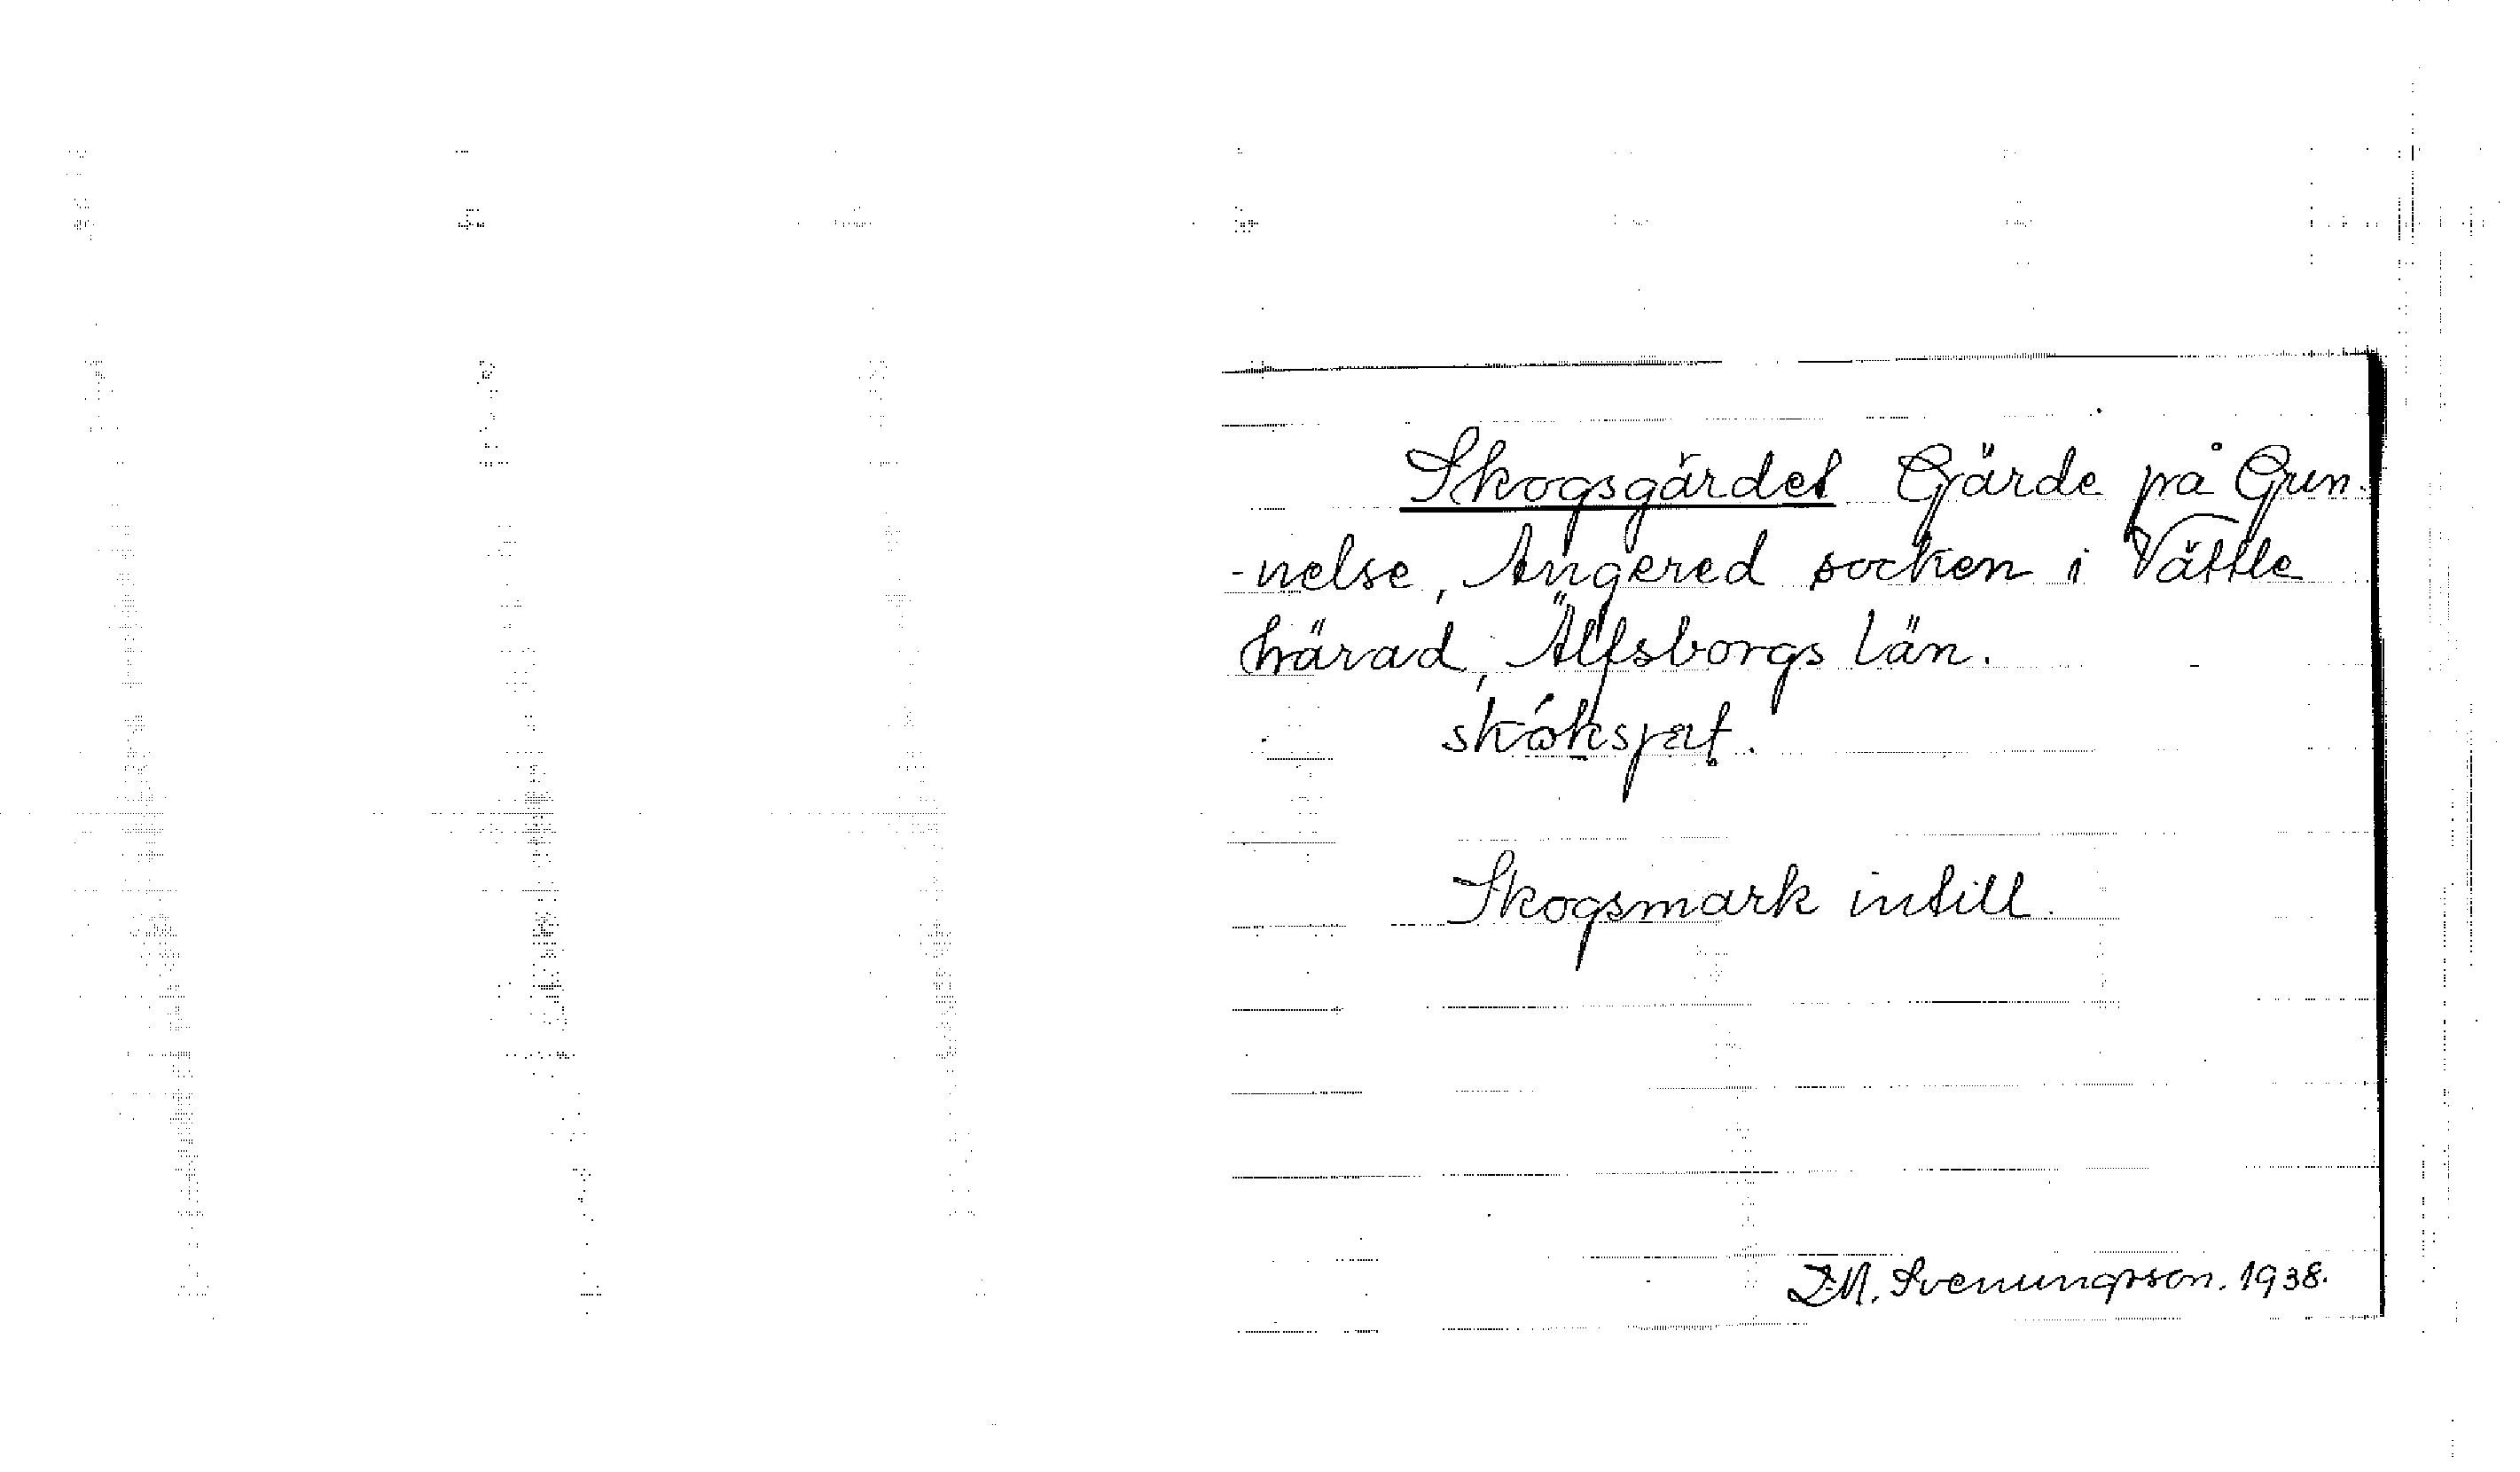 Skogsgärdet Gärde på Gun-
-nelse, Angered socken i Vättle
härad, Älfsborgs län.
Skogsmark intill.
D.M. Svenungsson. 1938.